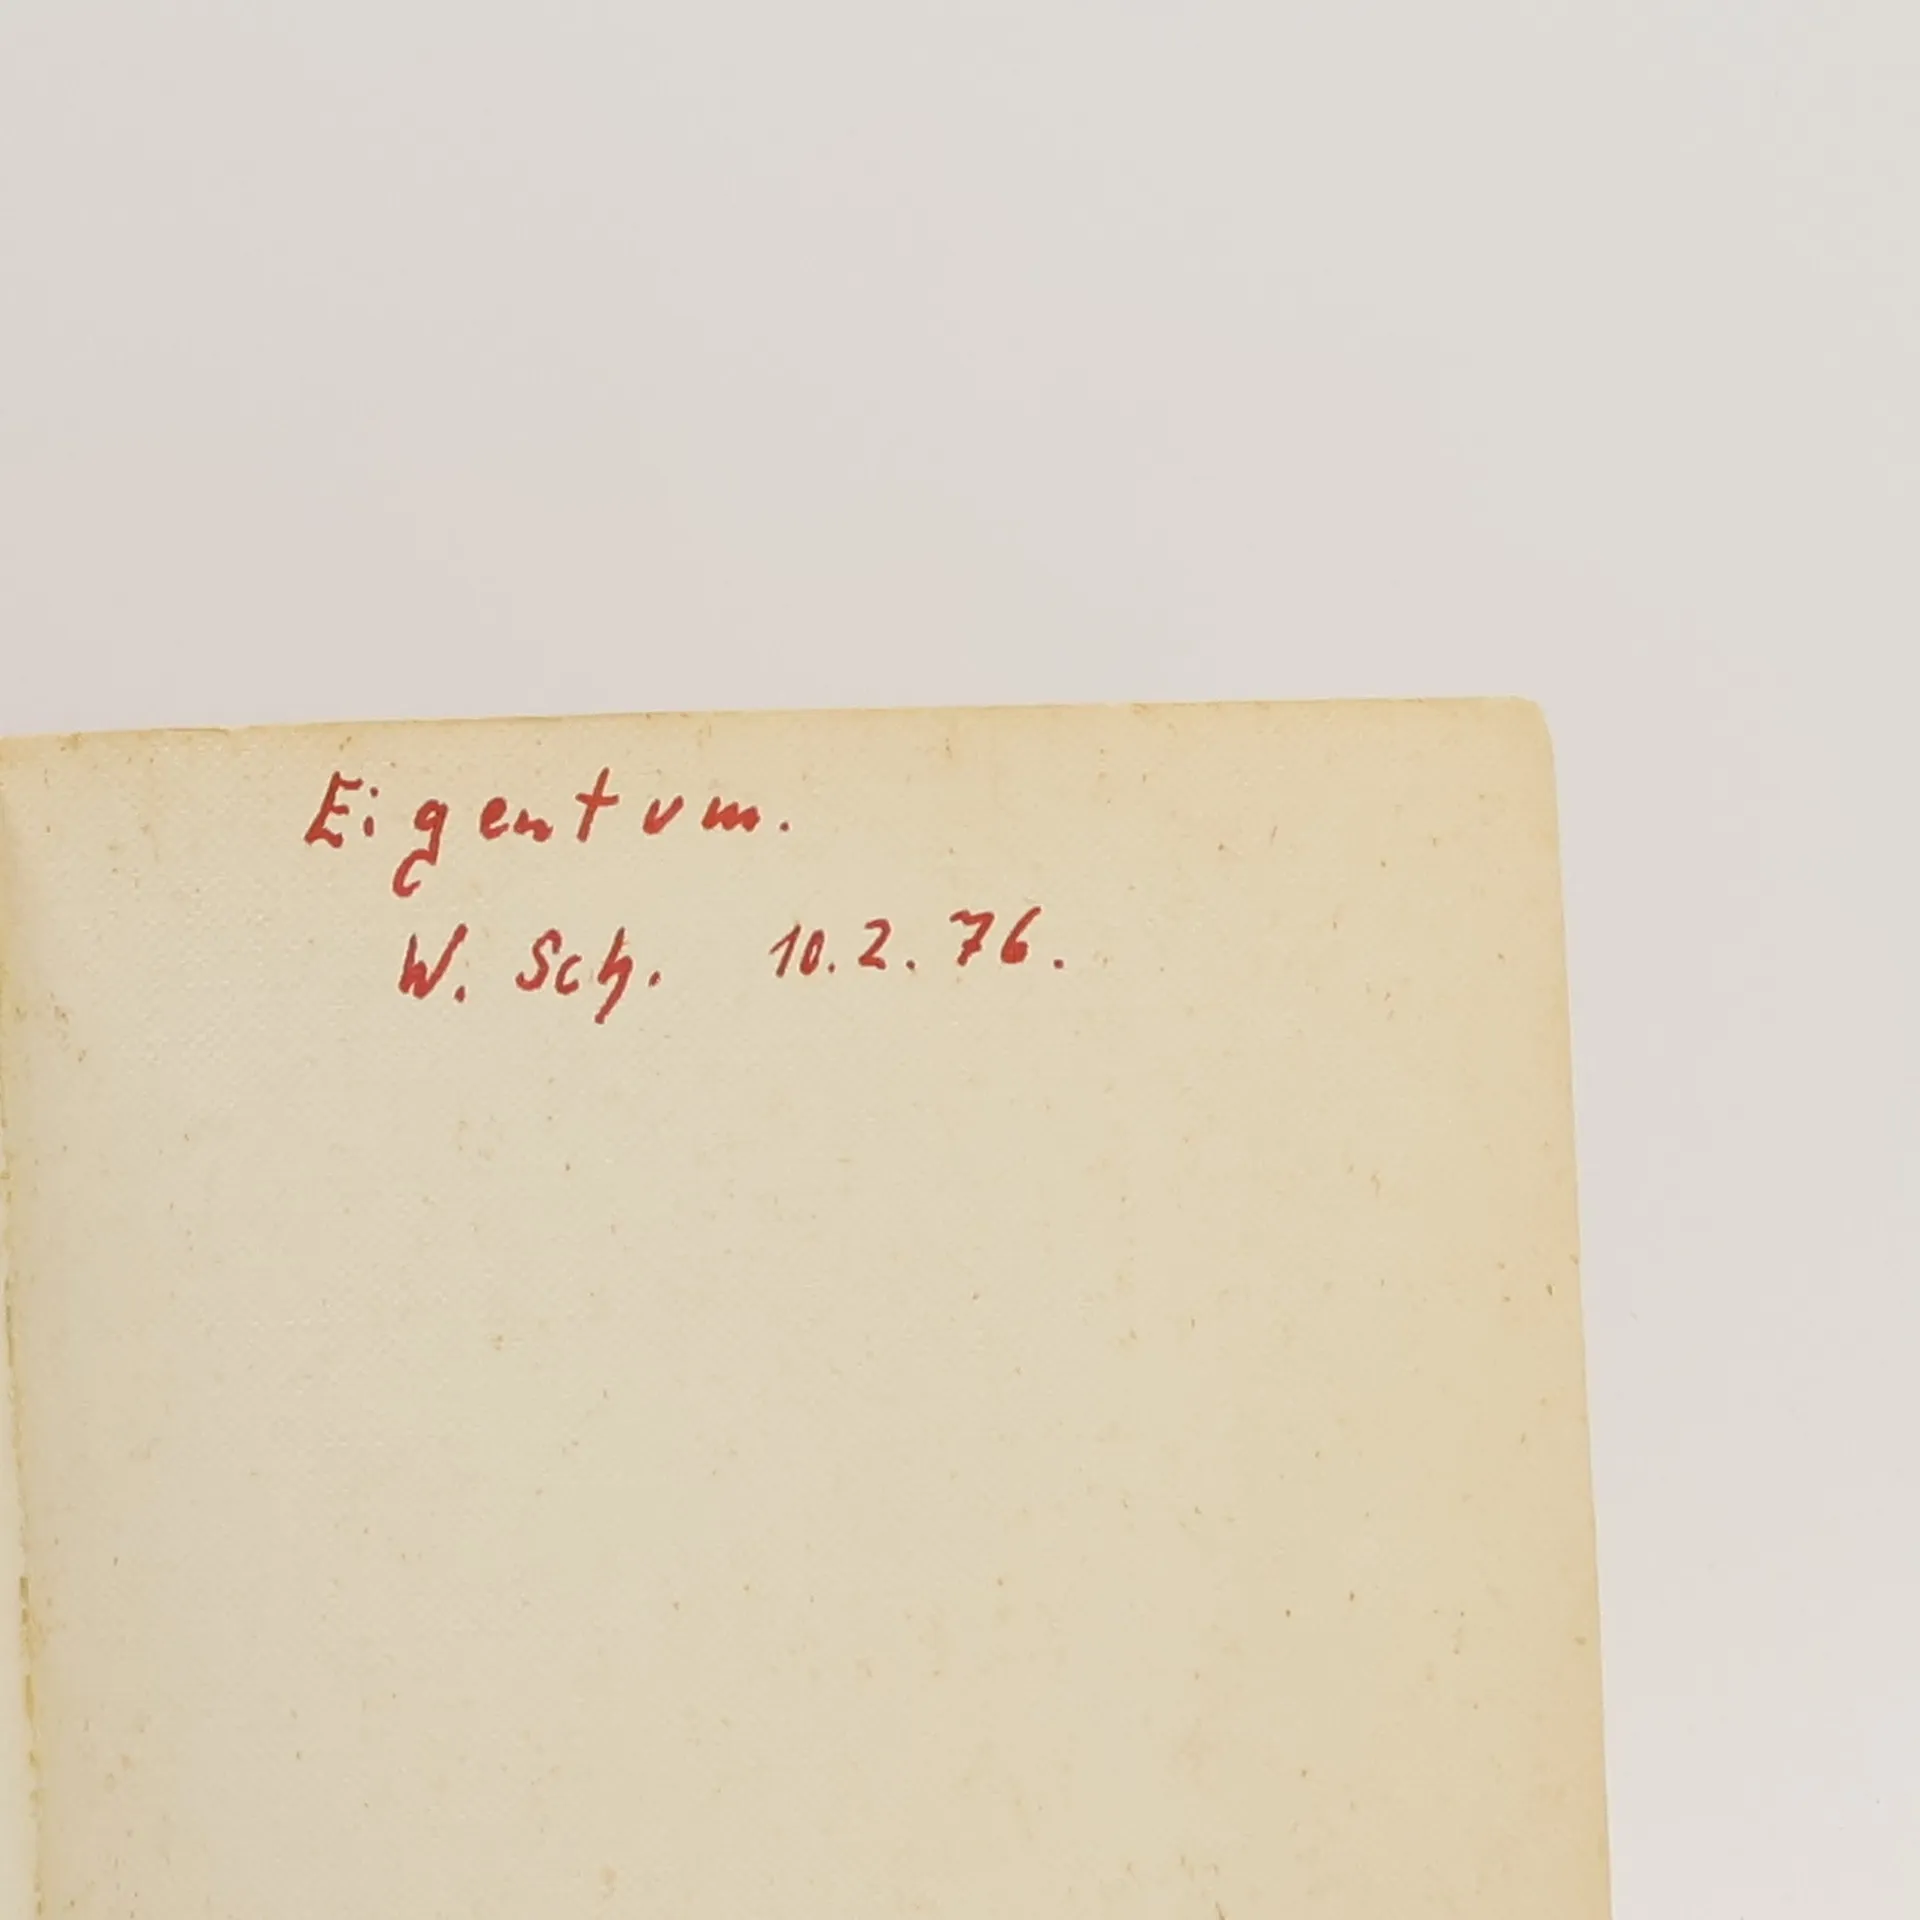 Eigentum.
W. Sch. 10.2.76.